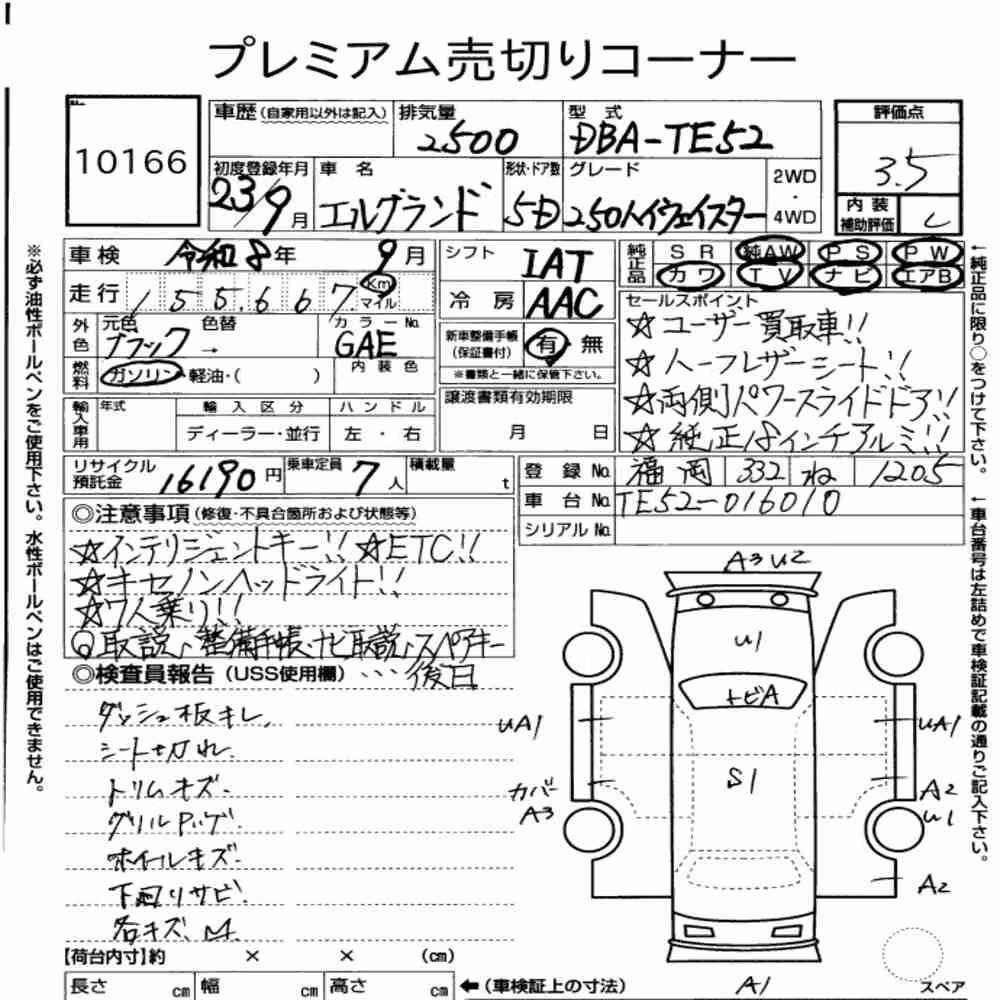 プレミアム売切りコーナー
10166
車歴（自家用以外は記入）
排気量 2500
型式 DBA-TE52
評価点 3.5
初度登録年月 23/9月
車名 エルグランド
形状・ドア数 5D
グレード 250ハイウェイスター
2WD・4WD
内装補助評価 C
車検 令和8年 9月
シフト IAT
純正品 SR 純AW PS PW
カワ TV ナビ エアB
走行 155,667 Km マイル
冷房 AAC
セールスポイント
☆ユーザー買取車!!
☆ハーフレザーシート!!
☆両側パワースライドドア!!
☆純正18インチアルミ!!
外色 元色 ブラック → 色替
カラーNo. GAE
内装色
新車整備手帳（保証書付） 有・無
※書類と一緒に保管下さい。
燃料 ガソリン・軽油・( )
譲渡書類有効期限 月 日
輸入車用 年式 輸入区分 ハンドル
ディーラー・並行 左・右
リサイクル預託金 16190円
乗車定員 7人
積載量 t
登録No. 福岡 332 ね 1205
車台No. TE52-016010
シリアルNo.
◎注意事項（修復・不具合箇所および状態等）
☆インテリジェントキー!! ☆ETC!!
☆キセノンヘッドライト!!
☆7人乗り!!
○取説、整備手帳、ナビ取説、スペアキー
…後日
◎検査員報告（USS使用欄）
ダッシュ板キレ
シート切れ
トリムキズ
グリルPハゲ
ホイールキズ
下回りサビ
各キズ、凹
A3 U2
U1
トビA
UA1
UA1
S1
カバーA3
A2
U1
A2
A1
スペア
【荷台内寸】約 × × （cm）
長さ cm 幅 cm 高さ cm ←（車検証上の寸法）
※必ず油性ボールペンをご使用下さい。水性ボールペンはご使用できません。
←純正品に限り○をつけて下さい。
←車台番号は左詰めで車検証記載の通りご記入下さい。